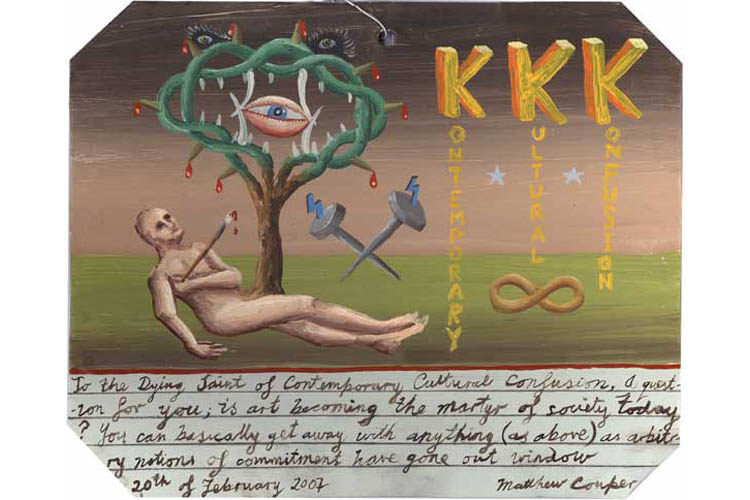 KONTEMPORARY
KULTURAL
KONFUSION
To the Dying Saint of Contemporary Cultural Confusion, A quest-
-ion for you; is art becoming the martyr of society today
? You can basically get away with anything (as above) as arbitr-
ry notions of commitment have gone out window
20th of February 2007
Matthew Couper